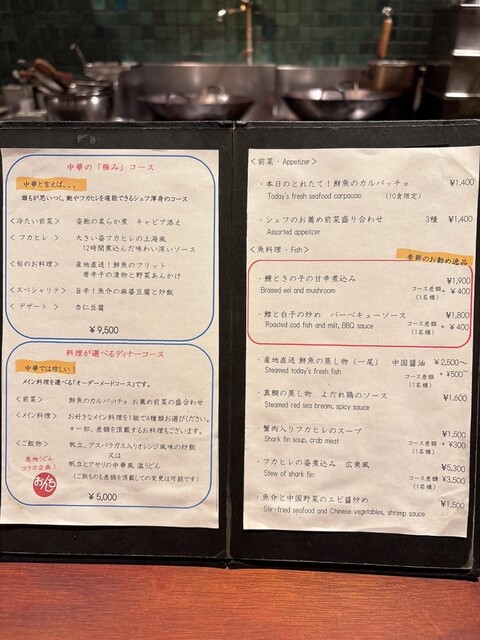 中華の「極み」コース
中華と言えば、、、
誰もが思いつく、鮑やフカヒレを堪能できるシェフ渾身のコース
<冷たい前菜> 姿鮑の柔らか煮 キャビア添え
<フカヒレ> 大きい姿フカヒレの上海風
12時間煮込んだ味わい深いソース
<旬のお料理> 産地直送!鮮魚のフリット
青辛子の漬物と野菜あんかけ
<スペシャリテ> 旨辛!魚介の麻婆豆腐と炒飯
<デザート> 杏仁豆腐
¥9,500
料理が選べるディナーコース
中華では珍しい!
メイン料理を選べる「オーダーメードコース」です。
<前菜> 鮮魚のカルパッチョ お薦め前菜の盛合わせ
<メイン料理> お好きなメイン料理を1組で4種類お選びください。
*一部、差額を頂戴するお料理もございます。
<ご飯物> 帆立、アスパラガス入りオレンジ風味の炒飯
又は
帆立とアサリの中華風 温うどん
(ご飯物も差額を頂戴しての変更は可能です)
恵地うどん
コラボ企画!
おんち
¥5,000
<前菜・Appetizer>
・本日のとれたて!鮮魚のカルパッチョ ¥1,400
Today's fresh seafood carpaccio (10食限定)
・シェフのお薦め前菜盛り合わせ 3種 ¥1,400
Assorted appetizer
<魚料理・Fish>
季節のお勧め逸品
・鰻ときの子の甘辛煮込み ¥1,900
Braised eel and mushroom コース差額 + ¥400
(1名様)
・鱈と白子の炒め バーベキューソース ¥1,800
Roasted cod fish and milt, BBQ sauce コース差額 + ¥400
(1名様)
・産地直送 鮮魚の蒸し物(一尾) 中国醤油 ¥2,500~
Steamed today's fresh fish コース差額 +¥500~
(1名様)
・真鯛の蒸し物 よだれ鶏のソース ¥1,600
Steamed red sea bream, spicy sauce
・蟹肉入りフカヒレのスープ ¥1,500
Shark fin soup, crab meat コース差額 + ¥300
(1名様)
・フカヒレの姿煮込み 広東風 ¥5,300
Stew of shark fin コース差額 ¥3,500
(1名様)
・魚介と中国野菜のエビ醤炒め ¥1,500
Stir-fried seafood and Chinese vegetables, shrimp sauce